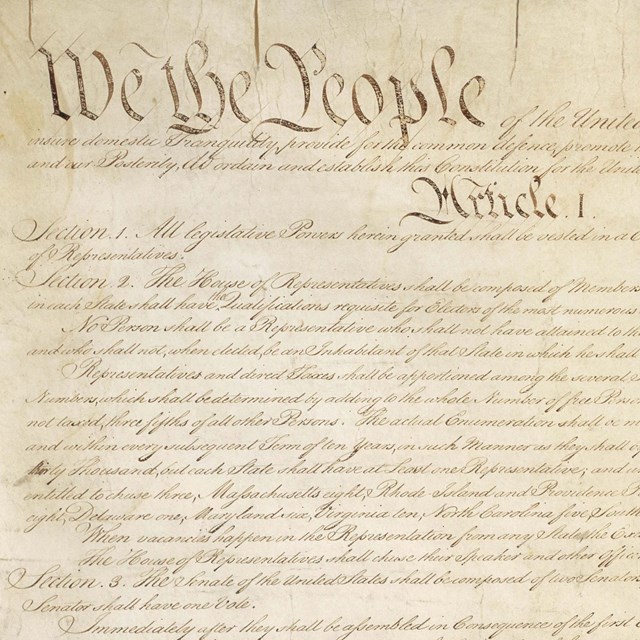 We the People of the United
insure domestic Tranquility, provide for the common defence, promote
and our Posterity, do ordain and establish this Constitution for the Unit
Article. I.
Section. 1. All legislative Powers herein granted shall be vested in a C
of Representatives.
Section. 2. The House of Representatives shall be composed of Members
in each State shall have the Qualifications requisite for Electors of the most numerous
No Person shall be a Representative who shall not have attained to the
and who shall not, when elected, be an Inhabitant of that State in which he shall
Representatives and direct Taxes shall be apportioned among the several
Numbers, which shall be determined by adding to the whole Number of free Perso
not taxed, three fifths of all other Persons. The actual Enumeration shall be m
and within every subsequent Term of ten Years, in such Manner as they shall
thirty Thousand, but each State shall have at Least one Representative; and
entitled to chuse three, Massachusetts eight, Rhode-Island and Providence P
eight, Delaware one, Maryland six, Virginia ten, North Carolina five, South
When vacancies happen in the Representation from any State, the Exe
The House of Representatives shall chuse their Speaker and other Office
Section. 3. The Senate of the United States shall be composed of two Senator
Senator shall have one Vote.
Immediately after they shall be assembled in Consequence of the first